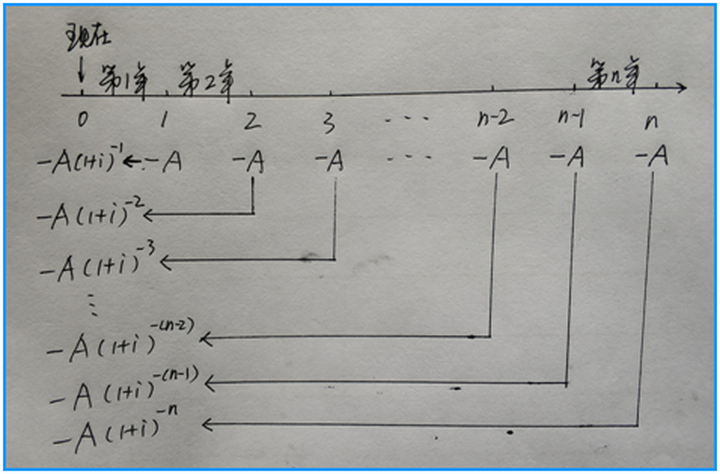 现在
第1年 第2年 第n年
0 1 2 3 ... n-2 n-1 n
-A(1+i)⁻¹ ← -A -A -A ... -A -A -A
-A(1+i)⁻²
-A(1+i)⁻³
⋮
-A(1+i)⁻⁽ⁿ⁻²⁾
-A(1+i)⁻⁽ⁿ⁻¹⁾
-A(1+i)⁻ⁿ